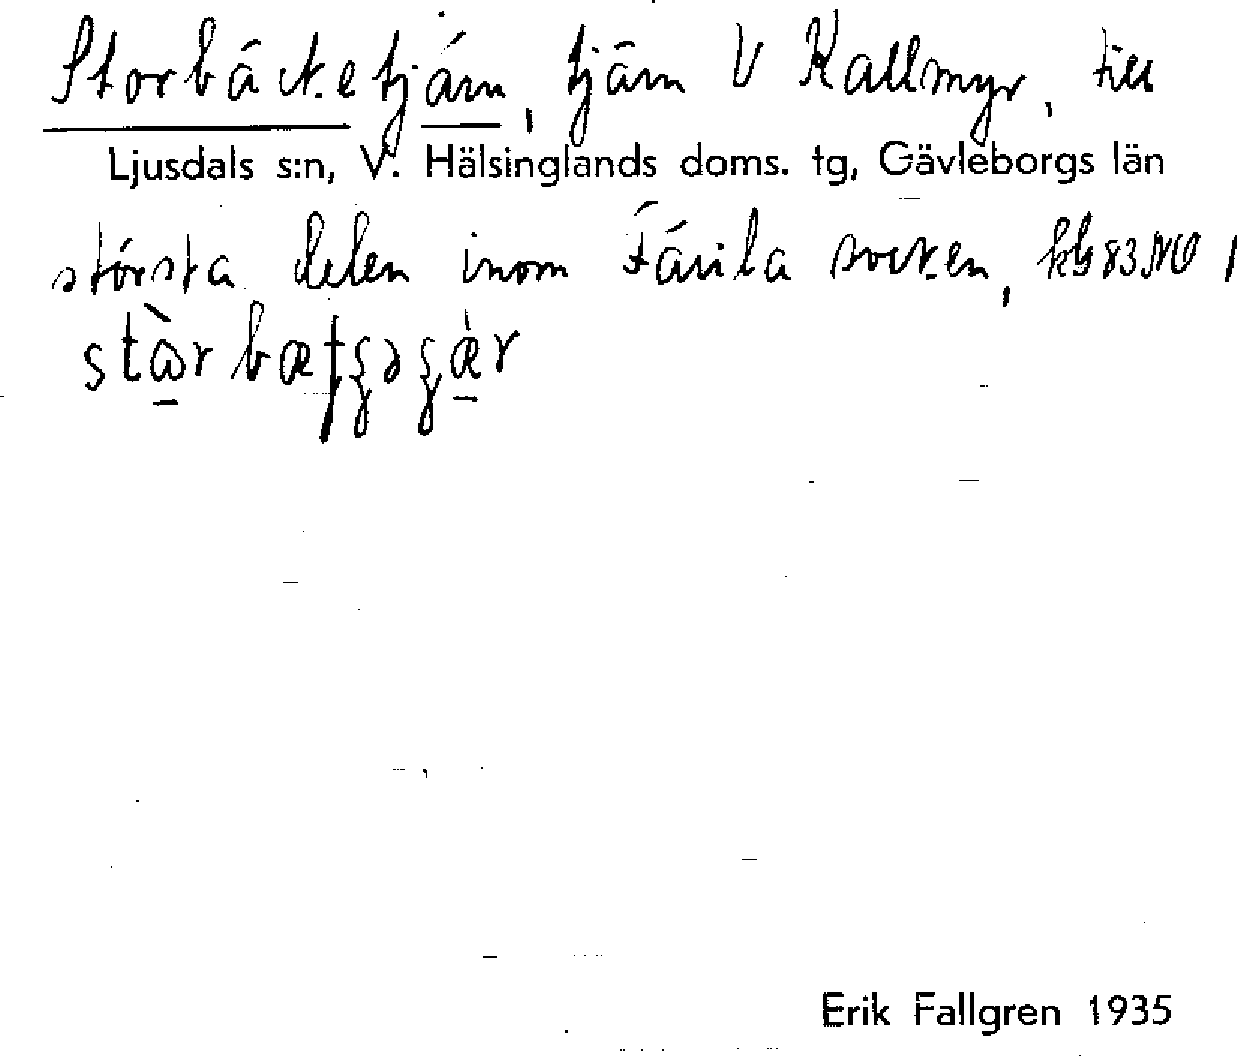 Storbäcketjärn, tjärn V Kallmyr, till
Ljusdals s:n, V. Hälsinglands doms. tg, Gävleborgs län
största delen inom Färila socken, kbl 83 NO 1
Erik Fallgren 1935